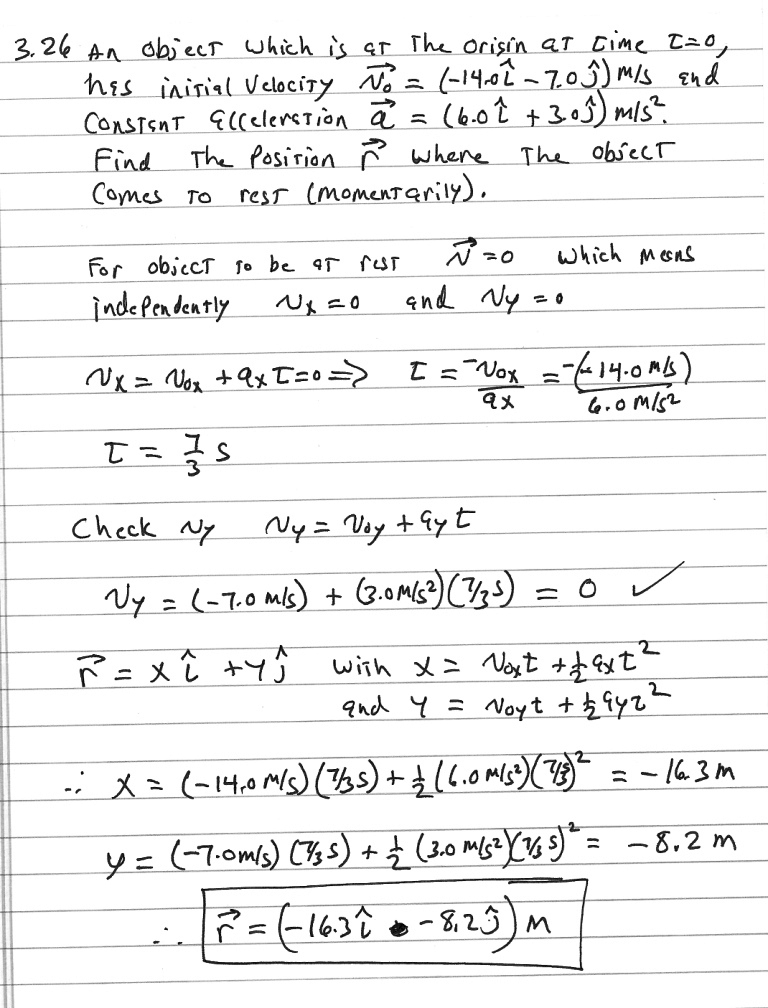 3.26 An object which is at the origin at time t=0,
has initial velocity v⃗₀ = (-14.0î - 7.0ĵ) m/s and
constant acceleration a⃗ = (6.0î + 3.0ĵ) m/s².
Find the position r⃗ where the object
comes to rest (momentarily).
For object to be at rest v⃗ = 0 which means
independently vx = 0 and vy = 0
vx = v0x + axt = 0 ⇒ t = -v0x/ax = -(-14.0 m/s)/6.0 m/s²
t = 7/3 s
Check vy vy = v0y + ayt
vy = (-7.0 m/s) + (3.0 m/s²)(7/3 s) = 0 ✓
r⃗ = xî + yĵ with x = v0xt + ½axt²
and y = v0yt + ½ayt²
∴ x = (-14.0 m/s)(7/3 s) + ½(6.0 m/s²)(7/3 s)² = -16.3 m
y = (-7.0 m/s)(7/3 s) + ½(3.0 m/s²)(7/3 s)² = -8.2 m
∴ r⃗ = (-16.3î - 8.2ĵ) m